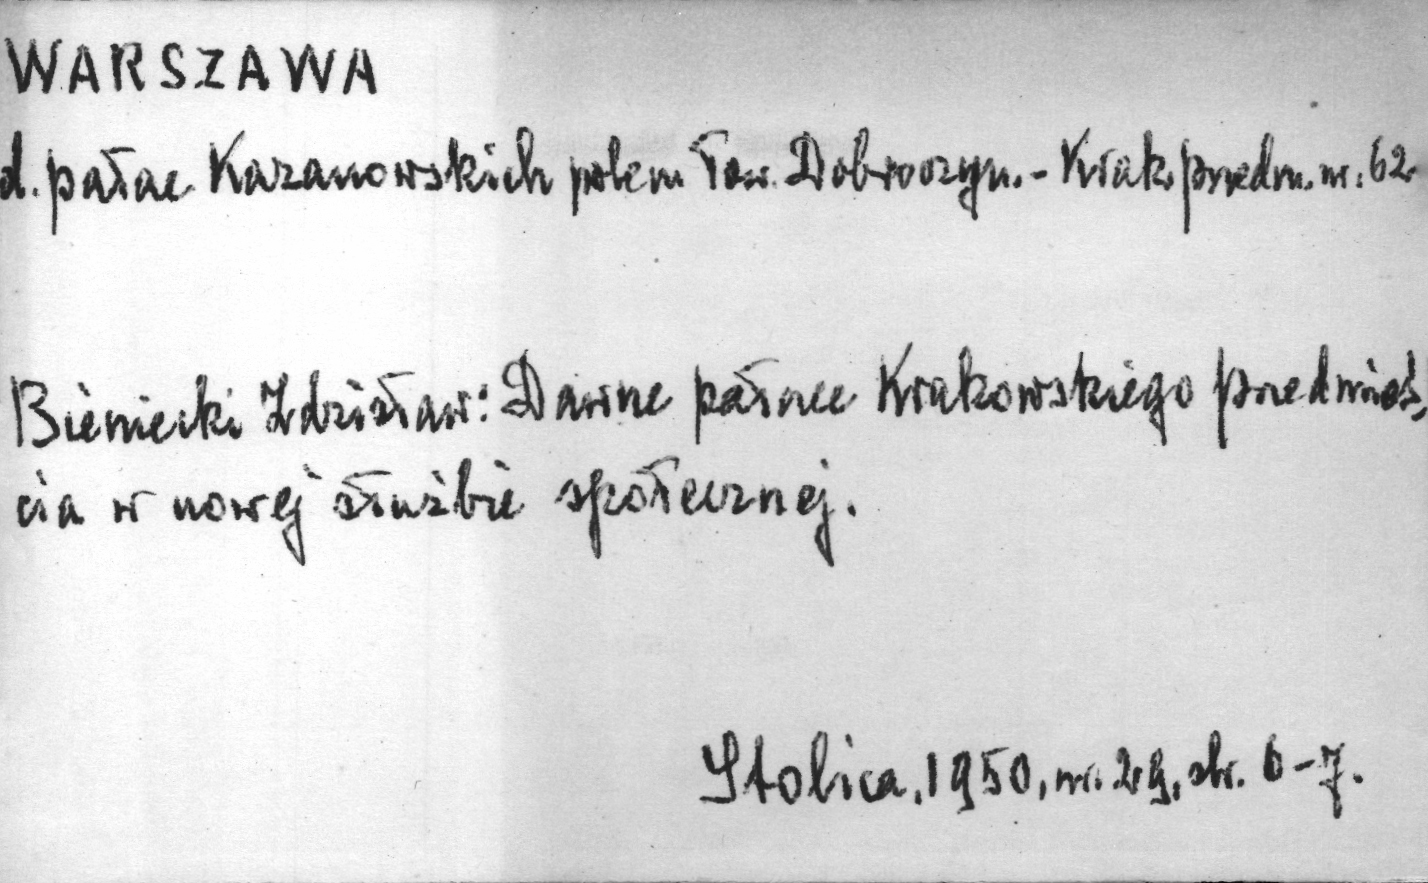 WARSZAWA
d. pałac Kazanowskich potem Tow. Dobroczyn. - Krak. przedm. nr. 62
Bieniecki Zdzisław: Dawne pałace Krakowskiego przedmieś,
cia w nowej służbie społecznej.
Stolica, 1950, nr. 29, str. 6-7.